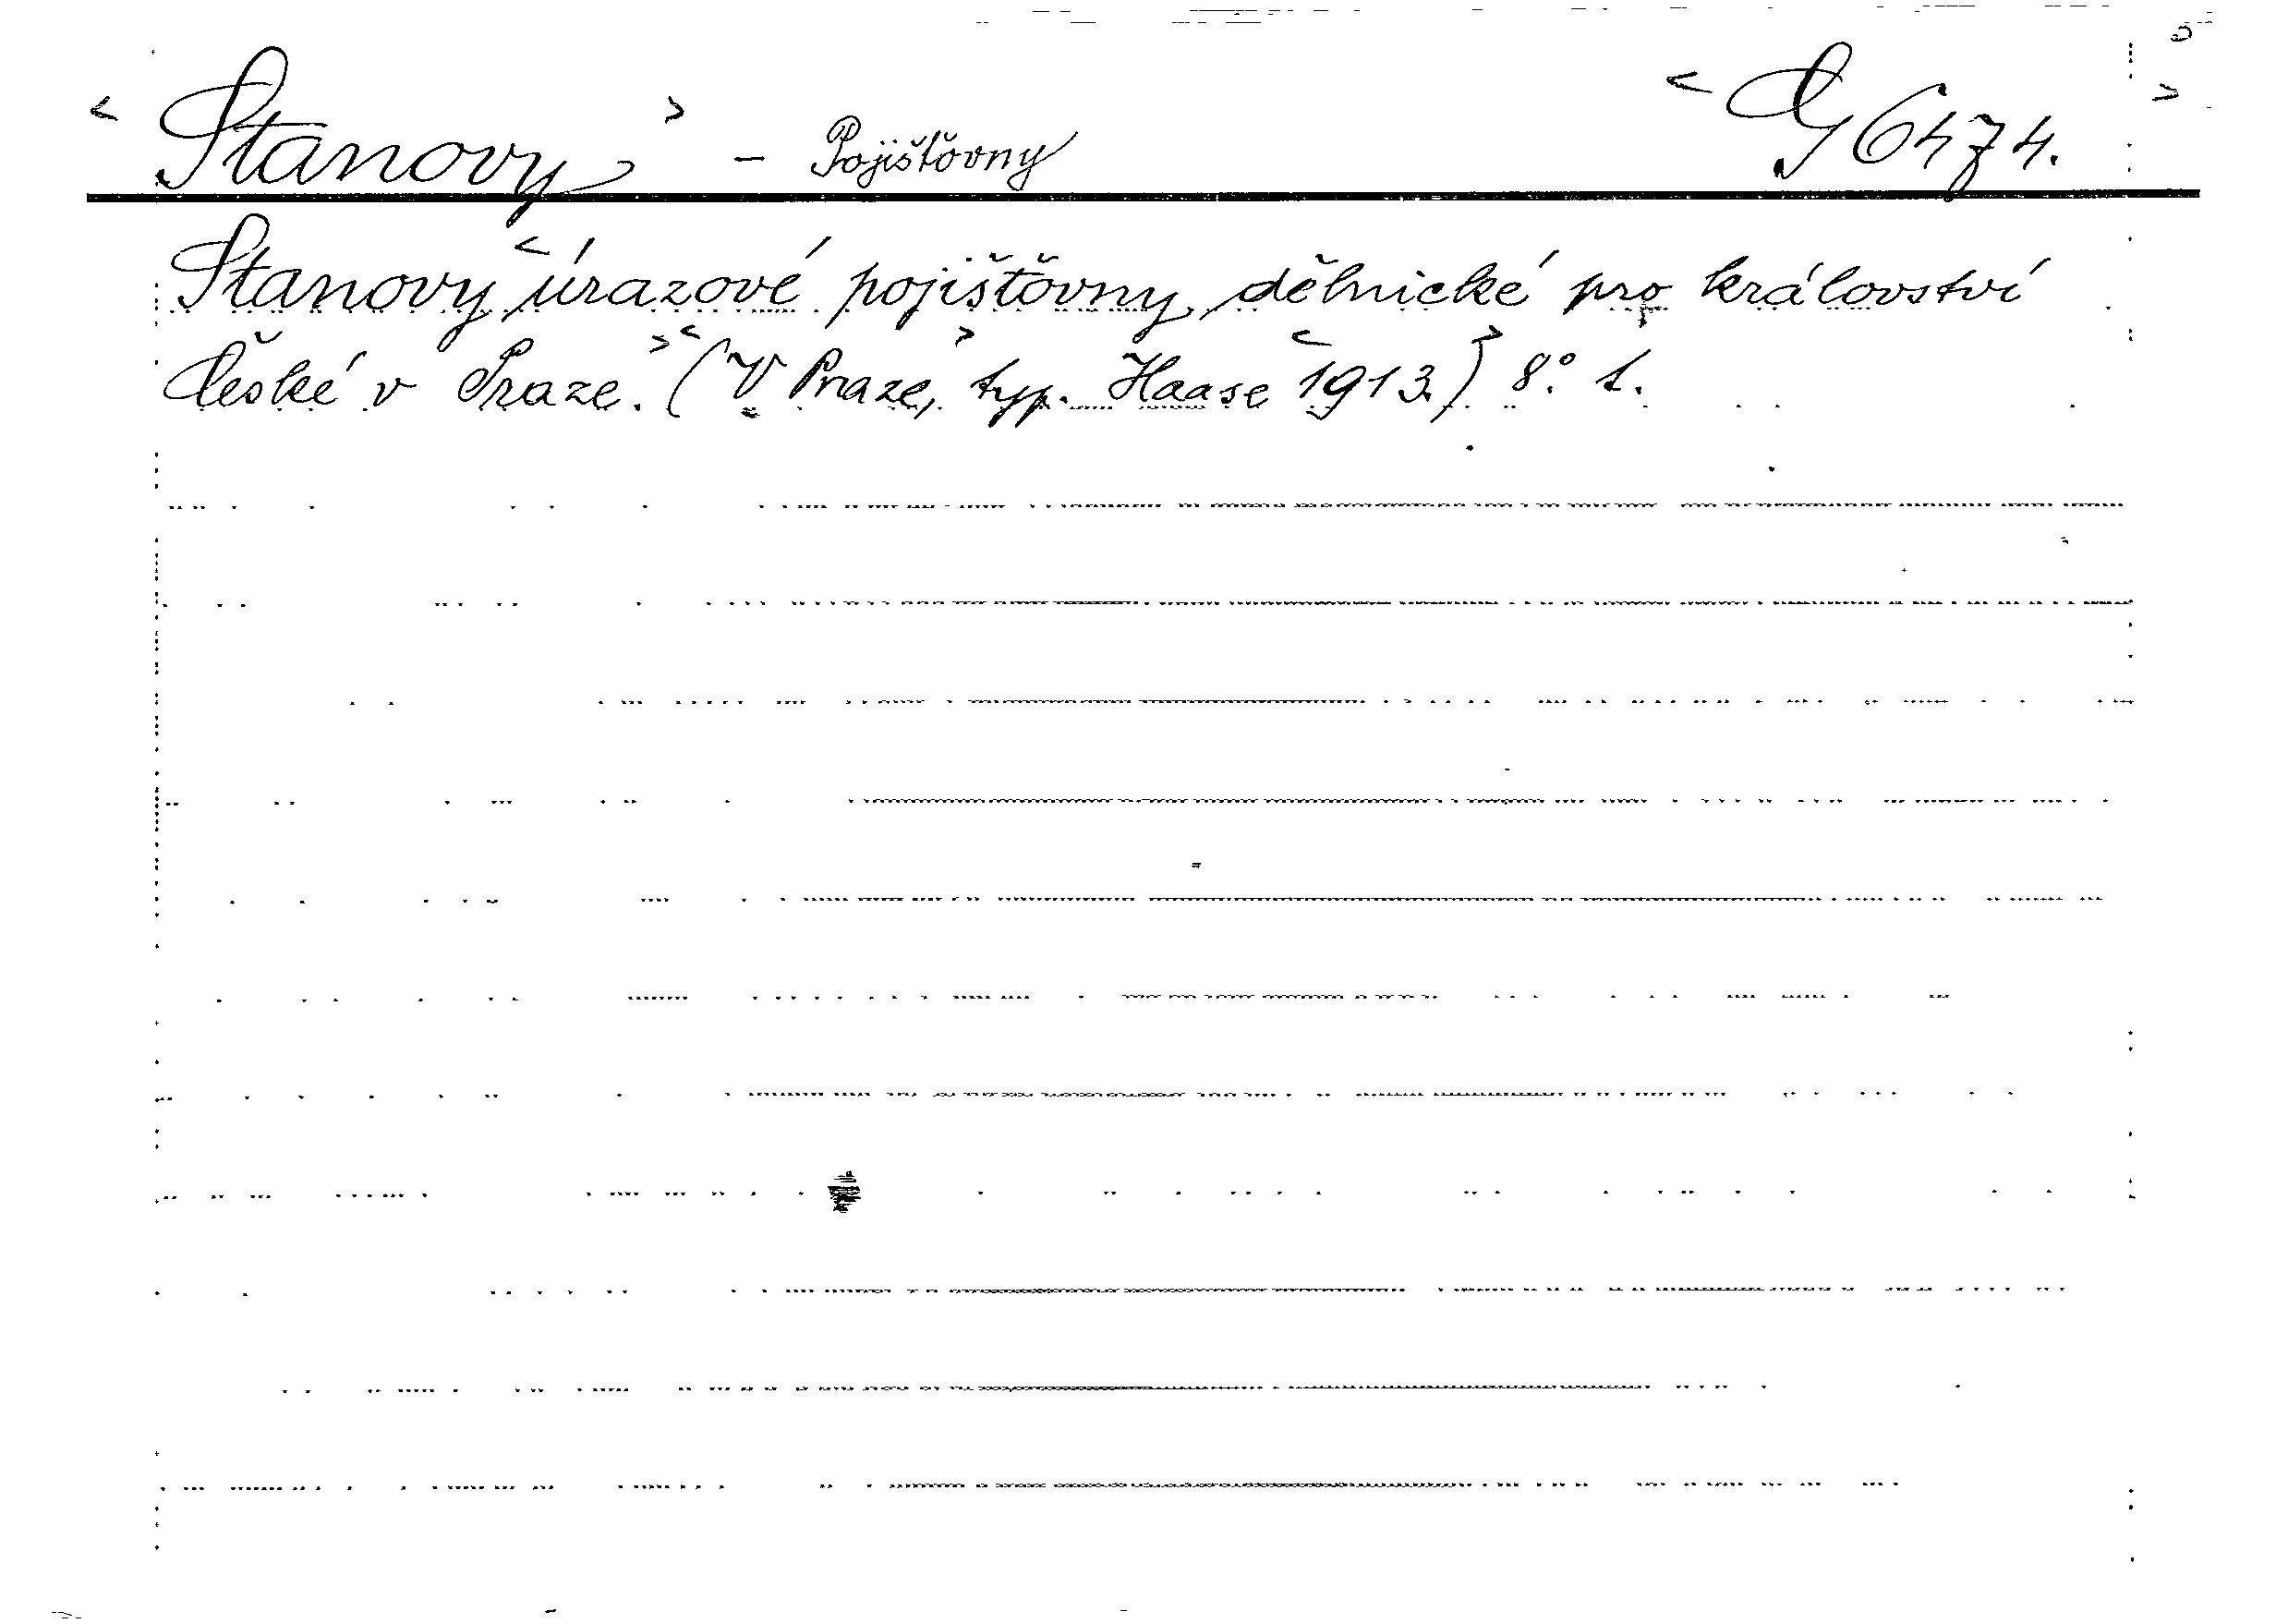 < Stanovy > - Pojišťovny < G 6474. >
Stanovy < úrazové pojišťovny dělnické pro království
české v Praze. > (< V Praze, > typ. Haase < 1913.) > 8° 1.